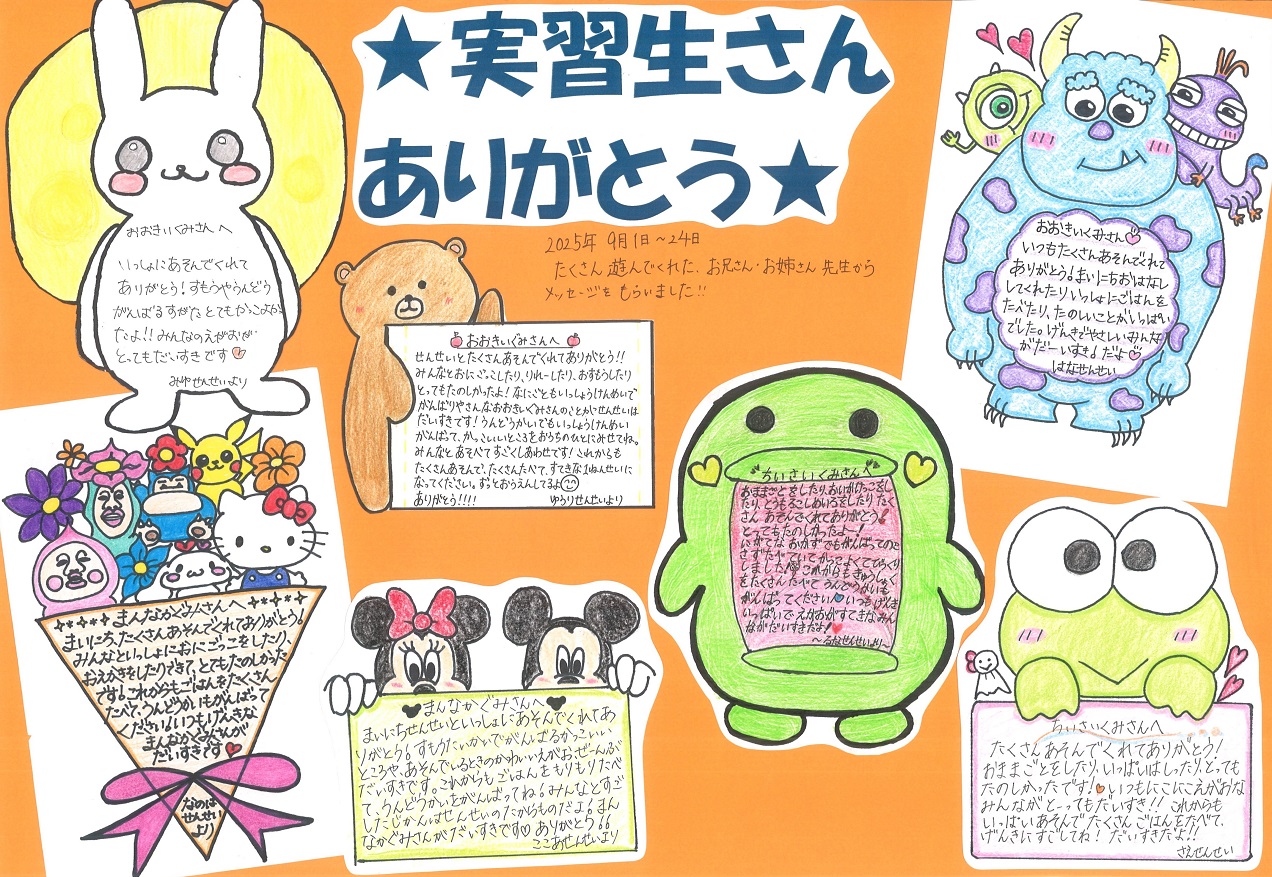 ★実習生さん
ありがとう★
2025年 9月1日～24日
たくさん 遊んでくれた、お兄さん・お姉さん 先生から
メッセージを もらいました!!
おおきいくみさん へ
いっしょにあそんでくれて
ありがとう!すもうやうんどう
がんばるすがた とてもかっこよかっ
たよ!!みんなのえがおが
とってもだいすきです♡
みゆせんせいより
おおきいぐみさんへ
せんせいとたくさんあそんでくれてありがとう!!
みんなとおにごっこしたり、りれーしたり、おすもうしたり
とってもたのしかったよ!なにごともいっしょうけんめいで
がんばりやさんなおおきいぐみさんのことがせんせいは
だいすきです!うんどうかいでもいっしょうけんめい
がんばって、かっこいいところをおうちのひとにみせてね。
みんなとあそべてすごくしあわせです!これからも
たくさんあそんで、たくさんたべて、すてきな1ねんせいに
なってください。ずっとおうえんしてるよ
ありがとう!!!!
ゆうりせんせいより
おおきいくみさん♡
いつもたくさんあそんでくれて
ありがとう!まいにちおはなし
してくれたりいっしょにごはんを
たべたり、たのしいことがいっぱい
でした。げんきでやさしいみんな
がだーいすき!だよ♡
はなせんせい
まんなかぐみさんへ
まいにち、たくさんあそんでくれてありがとう。
みんなといっしょにおにごっこをしたり、
おえかきをしたりできて、とてもたのしかった
です!これからもごはんをたくさん
たべて、うんどうかいもがんばって
ください!いつもげんきな
まんなかぐみさんが
だいすきです♥
なのは
せんせい
より
まんなかぐみさんへ
まいにちせんせいといっしょにあそんでくれてあ
りがとう。すもうたいかいでがんばるかっこいい
ところや、あそんでいるときのかわいいえがお、ぜーんぶ
だいすきです。これからもごはんをもりもりたべ
て、うんどうかいをがんばってね!みんなとすご
したじかんはせんせいのたからものだよ!まん
なかぐみさんがだいすきです♡ありがとう
ここあせんせいより
ちいさいくみさんへ
おままごとをしたり、おいかけっこをし
たり、とうもろこしのいろをしたり たく
さん あそんでくれてありがとう!
とってもたのしかったよー!
にがてな おかずでもがんばってのこ
さずたべていてかっこよくてびっくり
しました これからもきゅうしょく
をたくさん たべて うんどうかいも
がんばってください いつもげんき
いっぱいで えがおがすてきなみん
ながだいすきだよ♥
～るなせんせいより～
ちいさいくみさんへ
たくさん あそんでくれてありがとう!
おままごとをしたり、いっぱいはしったり、とっても
たのしかったです!いつもにこにこえがおな
みんながとーってもだいすき!!これからも
いっぱいあそんで たくさんごはんをたべて、
げんきにすごしてね! だいすきだよ!!
さえせんせい